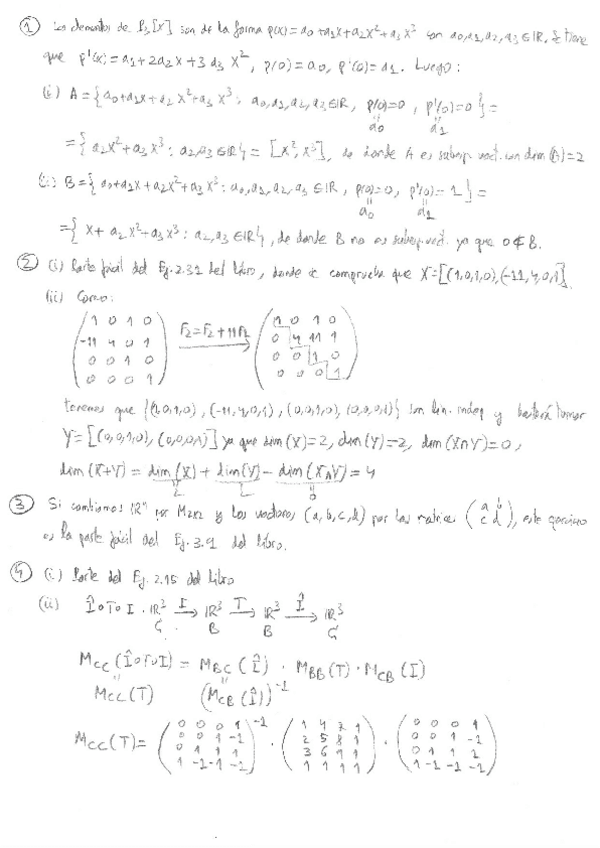 ① Los elementos de P₃[X] son de la forma p(x) = a₀ + a₁x + a₂x² + a₃x³ con a₀, a₁, a₂, a₃ ∈ IR. Se tiene
que p'(x) = a₁ + 2a₂x + 3a₃x², p(0) = a₀, p'(0) = a₁. Luego:
(i) A = {a₀ + a₁x + a₂x² + a₃x³ : a₀, a₁, a₂, a₃ ∈ IR, p(0) = 0, p'(0) = 0} =
a₀ a₁
= {a₂x² + a₃x³ : a₂, a₃ ∈ IR} = [x², x³], de donde A es subesp. vect. con dim(A) = 2
(ii) B = {a₀ + a₁x + a₂x² + a₃x³ : a₀, a₁, a₂, a₃ ∈ IR, p(0) = 0, p'(0) = 1} =
a₀ a₁
= {x + a₂x² + a₃x³ : a₂, a₃ ∈ IR}, de donde B no es subesp. vect. ya que 0 ∉ B.
② (i) Parte fácil del Ej. 2.31 del libro, donde se comprueba que X = [(1,0,1,0), (-11,4,0,1)]
(ii) Como:
1 0 1 0 1 0 1 0
-11 4 0 1 F₂ = F₂ + 11F₁ 0 4 11 1
0 0 1 0 0 0 1 0
0 0 0 1 0 0 0 1
tenemos que {(1,0,1,0), (-11,4,0,1), (0,0,1,0), (0,0,0,1)} son lin. indep. y bastará tomar
Y = [(0,0,1,0), (0,0,0,1)] ya que dim(X) = 2, dim(Y) = 2, dim(X∩Y) = 0,
dim(X+Y) = dim(X) + dim(Y) - dim(X∩Y) = 4
2 2 0
③ Si cambiamos IR⁴ por M₂ₓ₂ y los vectores (a,b,c,d) por las matrices (a b
c d), este ejercicio
es la parte fácil del Ej. 3.9 del libro.
④ (i) Parte del Ej. 2.15 del libro
(ii) Î∘T∘I : IR³ →I IR³ →T IR³ →Î IR³
C B B C
M_CC(Î∘T∘I) = M_BC(Î) · M_BB(T) · M_CB(I)
M_CC(T) (M_CB(Î))⁻¹
M_CC(T) =
0 0 0 1 -1 1 4 7 1 0 0 0 1
0 0 1 -1 · 2 5 8 1 · 0 0 1 -2
0 1 1 1 3 6 9 1 0 1 1 2
1 -1 -1 -2 1 1 1 1 1 -1 -2 -2